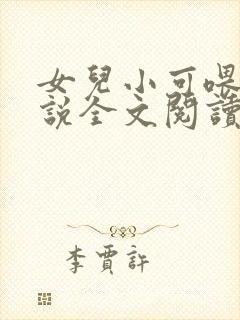 女兒小可喂
說全文閱讀
李賈許